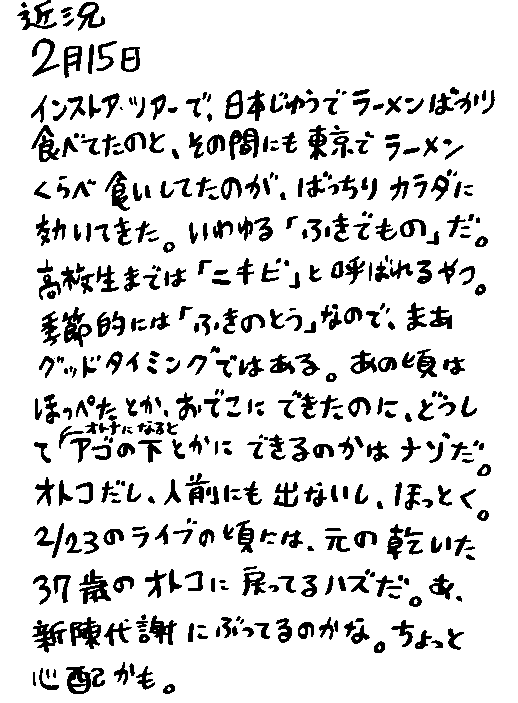 近況
2月15日
インストア・ツアーで、日本じゅうでラーメンばかり
食べてたのと、その間にも東京でラーメン
くらべ食いしてたのが、ばっちりカラダに
効いてきた。いわゆる「ふきでもの」だ。
高校生までは「ニキビ」と呼ばれるやつ。
季節的には「ふきのとう」なので、まあ
グッドタイミングではある。あの頃は
ほっぺたとか、おでこにできたのに、どうし
オトナになると
てアゴの下とかにできるのかはナゾだ。
オトコだし、人前にも出ないし、ほっとく。
2/23のライブの頃には、元の乾いた
37歳のオトコに戻ってるハズだ。あ、
新陳代謝にぶってるのかな。ちょっと
心配かも。